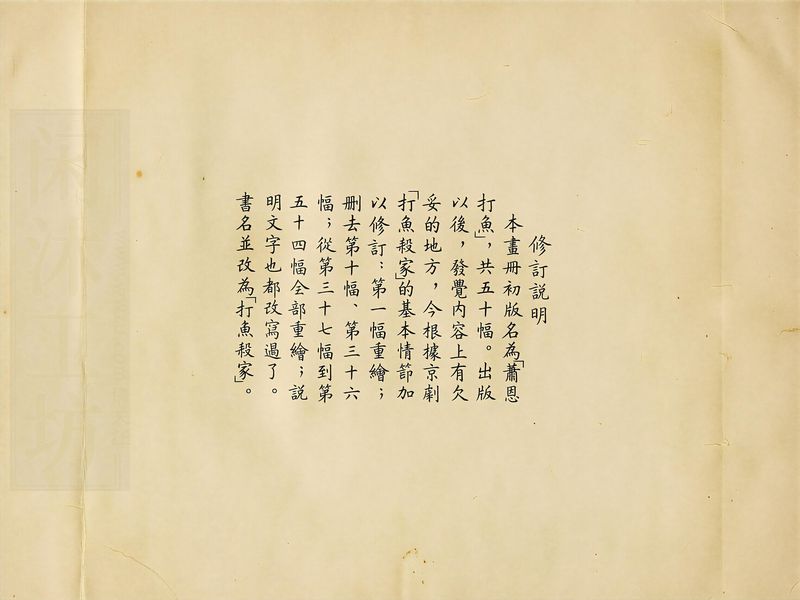 修訂説明
本畫册初版名為「蕭恩
打魚」，共五十幅。出版
以後，發覺内容上有欠
妥的地方，今根據京劇
「打魚殺家」的基本情節加
以修訂：第一幅重繪；
删去第十幅、第三十六
幅；從第三十七幅到第
五十四幅全部重繪；説
明文字也都改寫過了。
書名並改為「打魚殺家」。